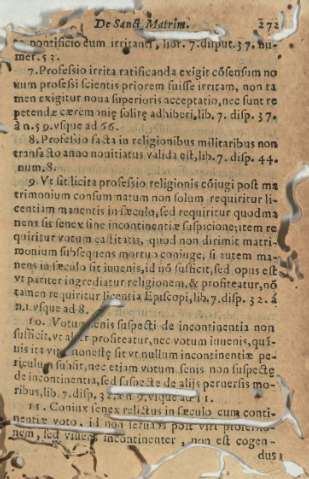 De Sanct. Matrim. 272
pontificio cum irritanti, lib. 7. disput. 37. nu-
mer. 53.
7. Professio irrita ratificanda exigit cōsensum no
uum professi scientis priorem fuisse irritam, non ta
men exigitur noua superioris acceptatio, nec sunt re
petendæ cærem solitę adhiberi, lib. 7. disp. 37.
à n. 59. vsque ad 66.
8. Professio facta in religionibus militaribus non
transacto anno nouitiatus valida est, lib. 7. disp. 44.
num. 8.
9. Vt sit licita professio religionis cōiugi post ma
trimonium consummatum non solum requiritur li-
centiam manentis in sæculo, sed requiritur quod ma
nens sit senex sine incontinentiæ suspicione; item re
quiritur votum castitatis, quod non dirimit matri-
monium subsequens mortuo coniuge, si autem ma-
nens in sæculo sit iuuenis, id nō sufficit, sed opus est
vt pariter ingrediatur religionem, & profiteatur, nō
tamen requiritur licentia Episcopi, lib. 7. disp. 32. à
n. 1. vsque ad 8.
10. Votum senis suspecti de incontinentia non
sufficit, vt alter profiteatur, nec votum iuuenis, qui-
uis ita honestè sit vt nullum incontinentiæ pe-
riculum subsit, nec etiam votum senis non suspectę
de incontinentia, sed suspectę de alijs peruersis mo-
ribus, lib. 7. disp. 32. à n. 9. vsque ad 11.
11. Coniux senex relictus in sæculo cum conti-
nentiæ voto, si non seruans post viri professio-
nem, sed viuens incontinenter, non est cogen-
dus